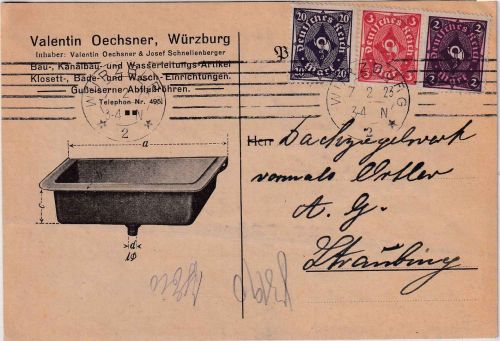 Valentin Oechsner, Würzburg
Inhaber: Valentin Oechsner & Josef Schnellenberger
Bau-, Kanalbau- und Wasserleitungs-Artikel
Klosett-, Bade- und Wasch-Einrichtungen.
Gußeiserne Abflußrohren.
Telephon-Nr. 495
2
P
20 Deutsches Reich 20
20 Mark 20
5 Deutsches Reich 5
5 Mark 5
2 Deutsches Reich 2
2 Mark 2
WÜRZBURG
7 2 23
3-4 N
2
3-4 N
a
c
d
Herr Dachziegelwerk
vormals Ortler
A. G.
Straubing